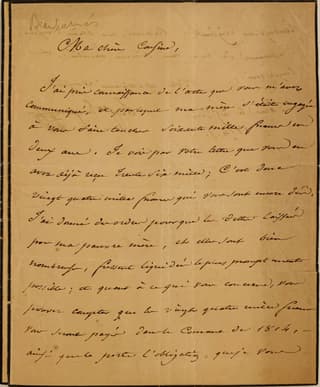 Beauharnais
Ma chère Cousine,
J'ai pris connaissance de l'acte que vous m'avez
communiqué, et par lequel ma mère s'était engagé
à vous faire toucher soixante mille francs en
deux ans. Je vois par votre lettre que vous en
avez déjà reçu trente six mille; C'est donc
vingt quatre mille francs qui vous sont encore dûs.
J'ai donné des ordres pour que les dettes laissées
par ma pauvre mère, et elles sont bien
nombreuses, fussent liquidées le plus promptement
possible; et quant à ce qui vous concerne, vous
pouvez compter que les vingt quatre mille francs
vous seront payés dans le Courant de 1814,
ainsi que le porte l'obligation, que je vous